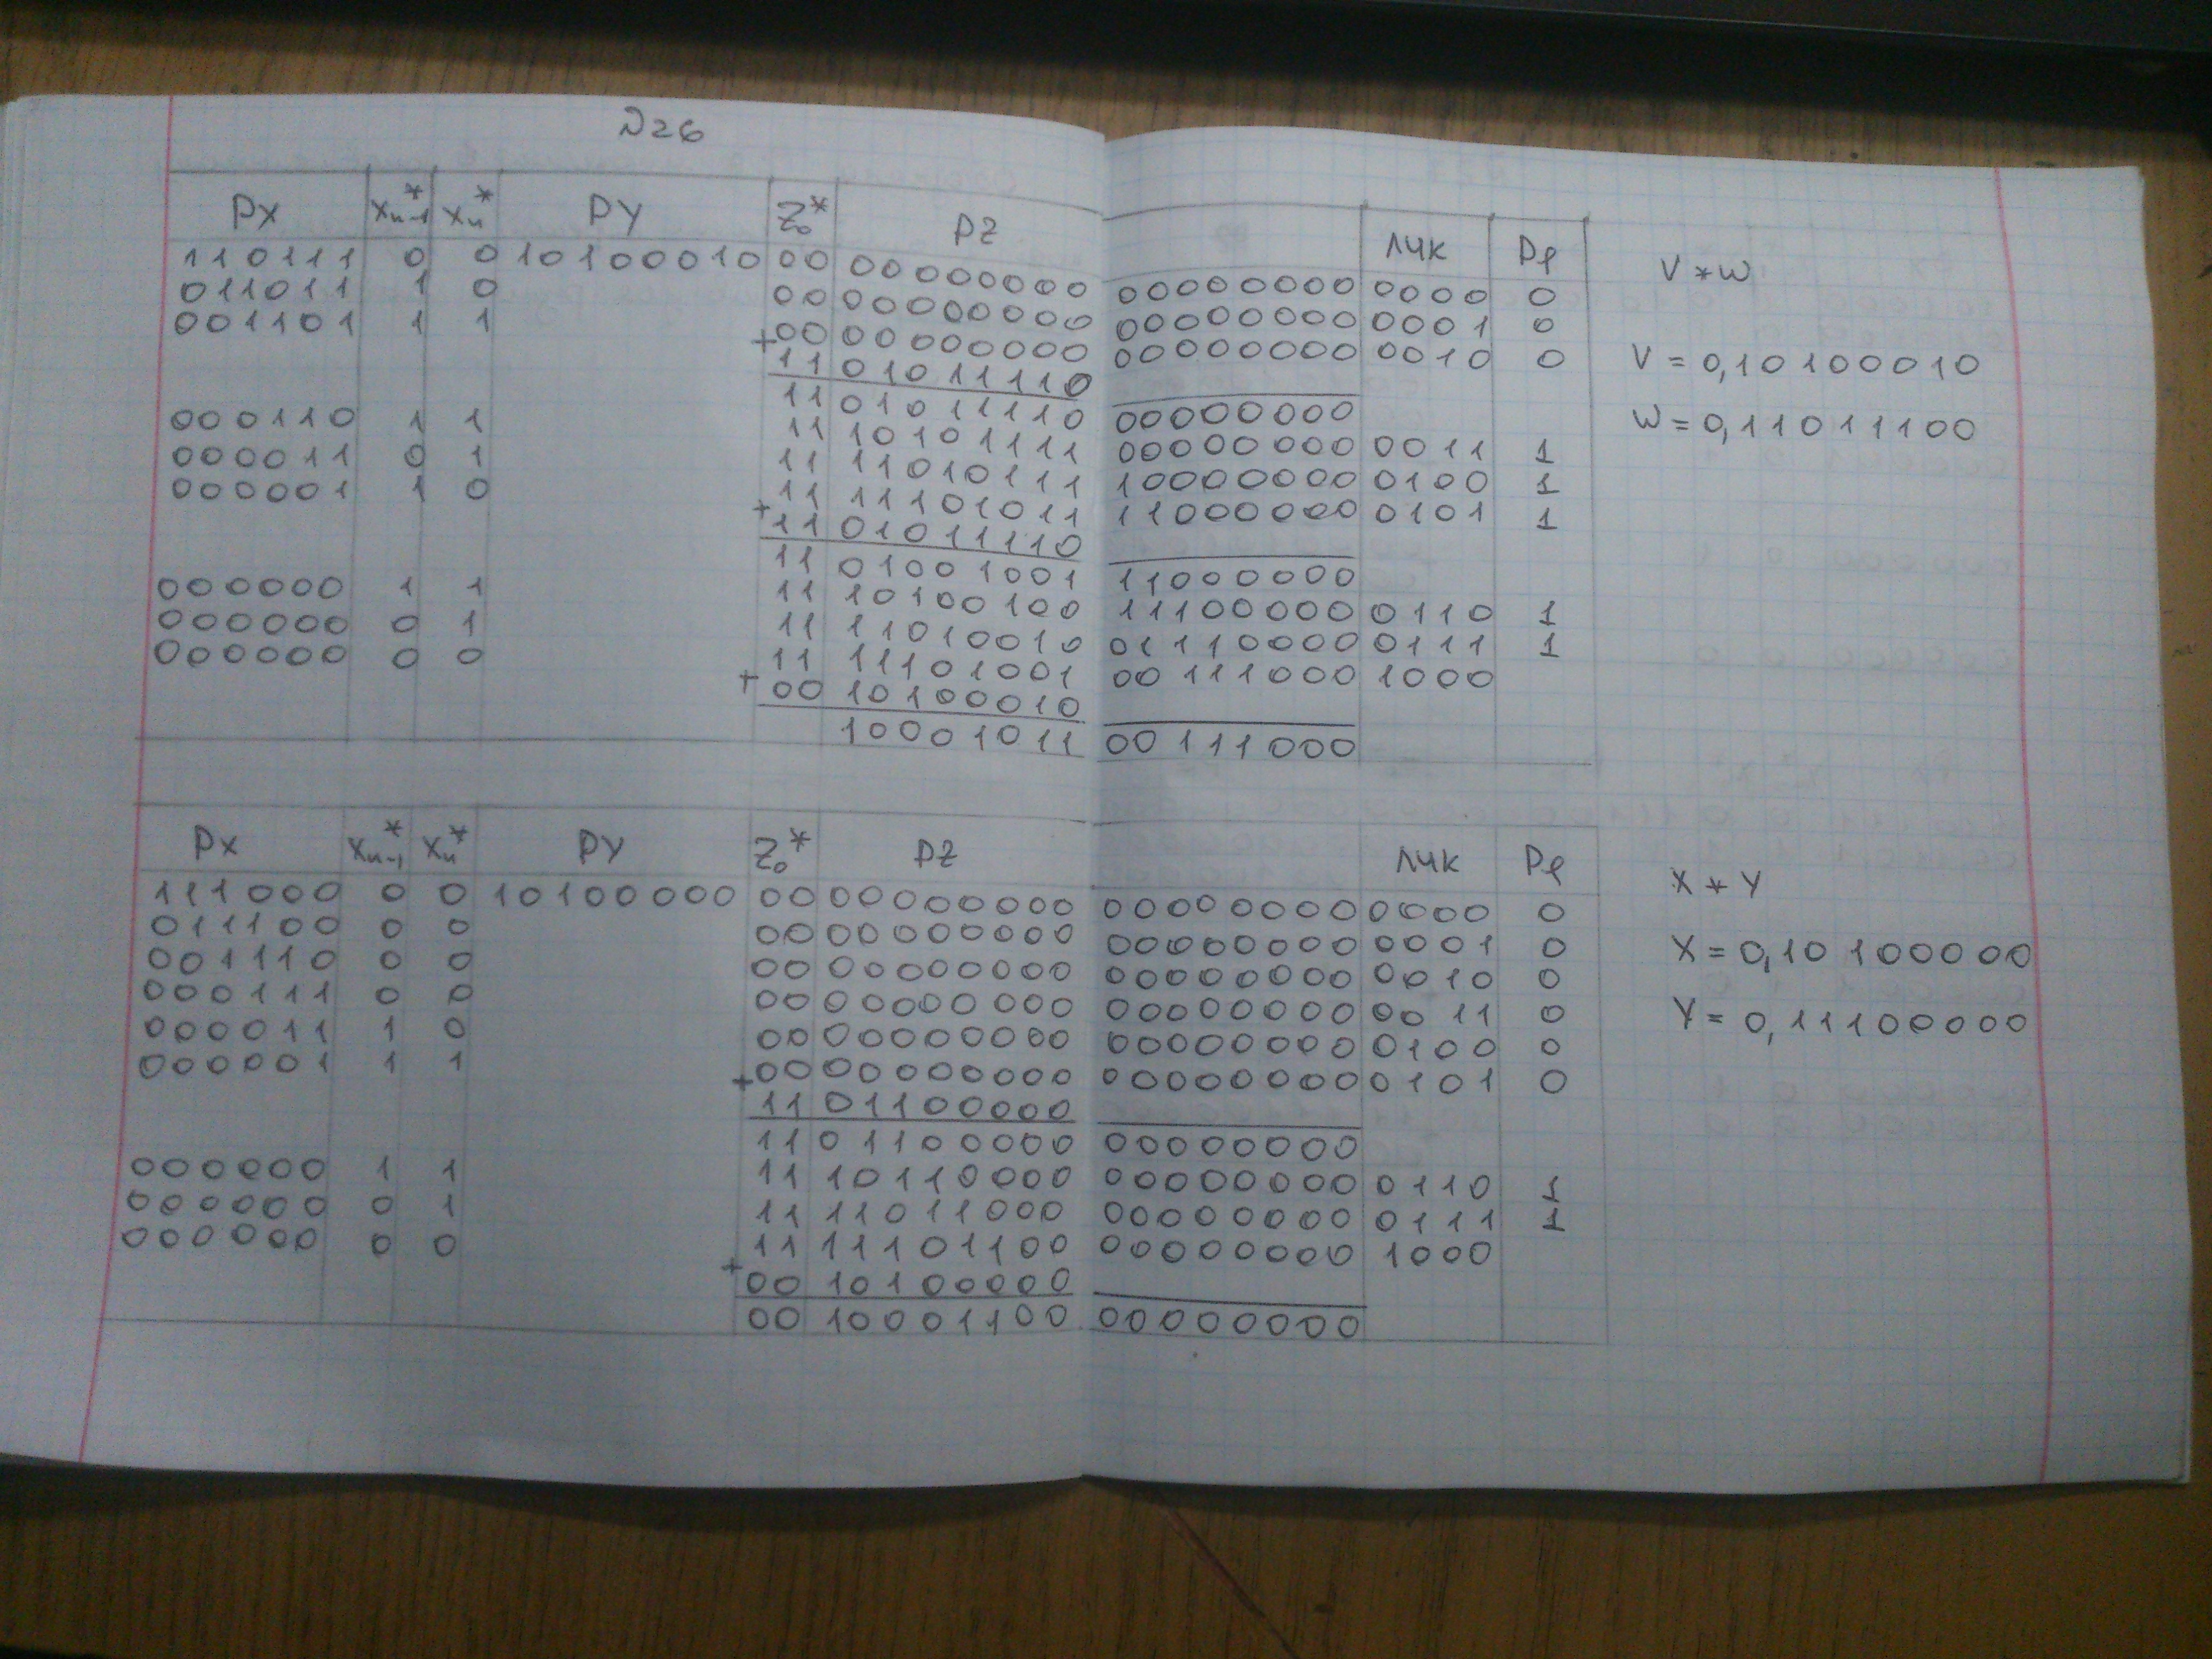 №26
PX Xn-1* Xn* PY Z0* PZ ЛЧК Pφ
110111 0 0 10100010 00 00000000 00000000 0000 0
011011 1 0 00 00000000 00000000 0001 0
001101 1 1 +00 00000000 00000000 0010 0
11 01011110
11 01011110 00000000
000110 1 1 11 10101111 00000000 0011 1
000011 0 1 11 11010111 10000000 0100 1
000001 1 0 11 11101011 11000000 0101 1
+11 01011110
11 01001001 11000000
000000 1 1 11 10100100 11100000 0110 1
000000 0 1 11 11010010 01110000 0111 1
000000 0 0 11 11101001 00111000 1000
+00 10100010
10001011 00111000
V*W
V=0,10100010
W=0,11011100
PX Xn-1* Xn* PY Z0* PZ ЛЧК
111000 0 0 10100000 00 00000000 00000000 0000 0
011100 0 0 00 00000000 00000000 0001 0
001110 0 0 00 00000000 00000000 0010 0
000111 0 0 00 00000000 00000000 0011 0
000011 1 0 00 00000000 00000000 0100 0
000001 1 1 +00 00000000 00000000 0101 0
11 01100000
11 01100000 00000000
000000 1 1 11 10110000 00000000 0110 1
000000 0 1 11 11011000 00000000 0111 1
000000 0 0 11 11101100 00000000 1000
+00 10100000
00 10001100 00000000
X*Y
X=0,10100000
Y=0,11100000